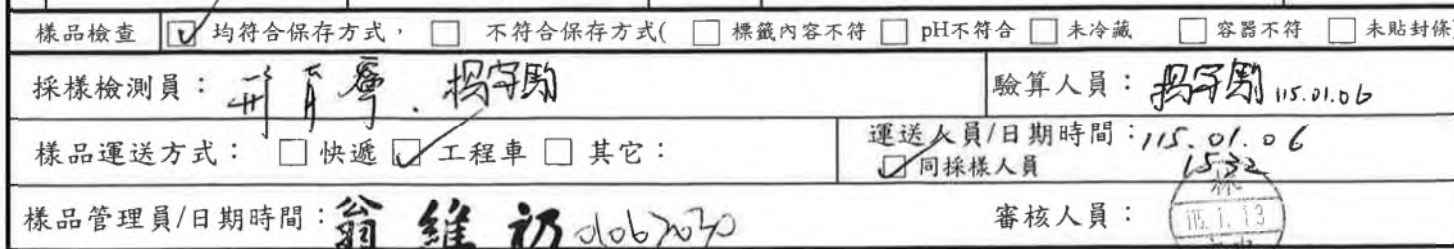 樣品檢查 ☑ 均符合保存方式， □ 不符合保存方式( □ 標籤內容不符 □ pH不符合 □ 未冷藏 □ 容器不符 □ 未貼封條
採樣檢測員： 楊守 驗算人員： 楊守 115.01.06
樣品運送方式： □ 快遞 ☑ 工程車 □ 其它： 運送人員/日期時間：115.01.06
☑ 同採樣人員 1532
樣品管理員/日期時間：翁維礽 審核人員： 林 115.1.13